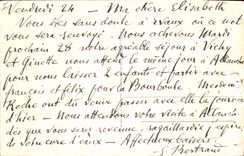 Vendredi 24 — Ma chère Elisabeth
Vous êtes sans doute à Evaux où ce mot
vous sera renvoyé. Nous achevons Mardi
prochain 28 notre agréable séjour à Vichy
et Ginette nous attend le même jour à
pour nous laisser 2 enfants et partir avec
françois et félix pour la Bourboule. Mesdem
Roche ont du venir passer avec elle la journée
d'hier. Nous attendons votre visite à
dès que vous serez revenue, ragaillardie j'espère,
de votre cure d'eaux. Affectueux baisers
S. Bertrand